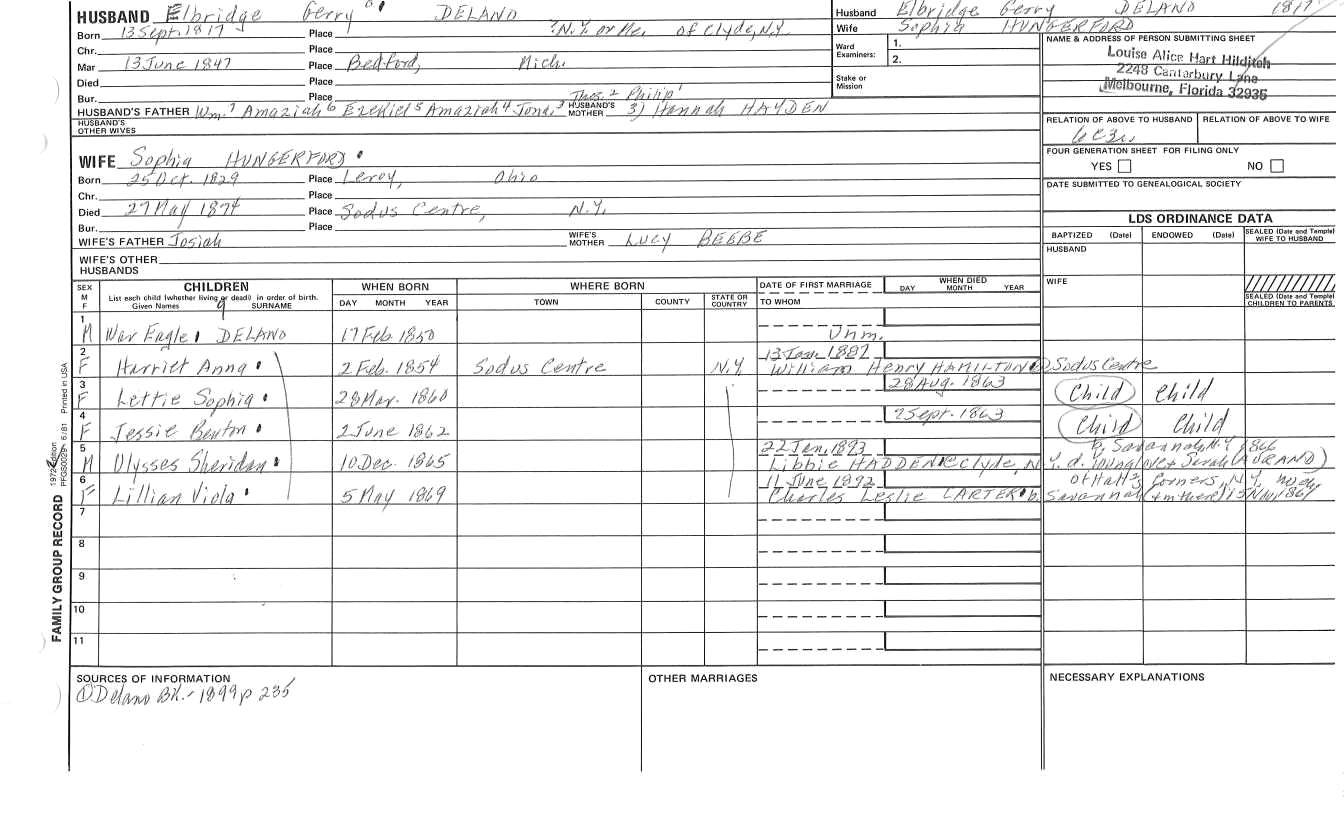 HUSBAND Elbridge Gerry DELANO
Born 13 Sept. 1817 Place ?N.Y. or Me. of Clyde, N.Y.
Chr. Place
Mar 13 June 1847 Place Bedford, Mich.
Died Place
Bur. Place
Thos.2 Philip1
HUSBAND'S FATHER Wm.7 Amaziah6 Ezekiel5 Amaziah4 Jona.3 HUSBAND'S MOTHER 3) Hannah HAYDEN
HUSBAND'S OTHER WIVES
WIFE Sophia HUNGERFORD
Born 25 Oct. 1829 Place Leroy, Ohio
Chr. Place
Died 27 May 1874 Place Sodus Centre, N.Y.
Bur. Place
WIFE'S FATHER Josiah WIFE'S MOTHER Lucy BEEBE
WIFE'S OTHER HUSBANDS
Husband Elbridge Gerry DELANO 1817
Wife Sophia HUNGERFORD
Ward Examiners: 1.
2.
Stake or Mission
NAME & ADDRESS OF PERSON SUBMITTING SHEET
Louise Alice Hart Hilditch
2248 Cantarbury Lane
Melbourne, Florida 32935
RELATION OF ABOVE TO HUSBAND RELATION OF ABOVE TO WIFE
FOUR GENERATION SHEET FOR FILING ONLY
YES NO
DATE SUBMITTED TO GENEALOGICAL SOCIETY
LDS ORDINANCE DATA
BAPTIZED (Date) ENDOWED (Date) SEALED (Date and Temple) WIFE TO HUSBAND
HUSBAND
WIFE
SEALED (Date and Temple) CHILDREN TO PARENTS
SEX M F CHILDREN WHEN BORN WHERE BORN DATE OF FIRST MARRIAGE WHEN DIED
List each child (whether living or dead) in order of birth.
Given Names 9 SURNAME DAY MONTH YEAR TOWN COUNTY STATE OR COUNTRY TO WHOM DAY MONTH YEAR
1 M War Eagle DELANO 17 Feb. 1850 Unm.
2 F Harriet Anna 2 Feb. 1854 Sodus Centre N.Y. 1887 William Henry HAMILTON Sodus Centre
3 F Lettie Sophia 28 Mar. 1860 28 Aug. 1863 Child Child
4 F Jessie Benton 2 June 1862 9 Sept. 1863 Child Child
5 M Ulysses Sheridan 10 Dec. 1865 22 Jan. 1893 b. Savannah N.Y. 1866
Libbie HADDEN Clyde, N.Y. d. Younglove & Sarah (DURAND)
6 F Lillian Viola 5 May 1869 11 June 1892 Corners, N.Y.
Charles Leslie CARTER b. Savannah
7
8
9
10
11
SOURCES OF INFORMATION
① Delano Bk. - 1899 p 235
OTHER MARRIAGES
NECESSARY EXPLANATIONS
FAMILY GROUP RECORD
PFGS0029 6/81 Printed in USA